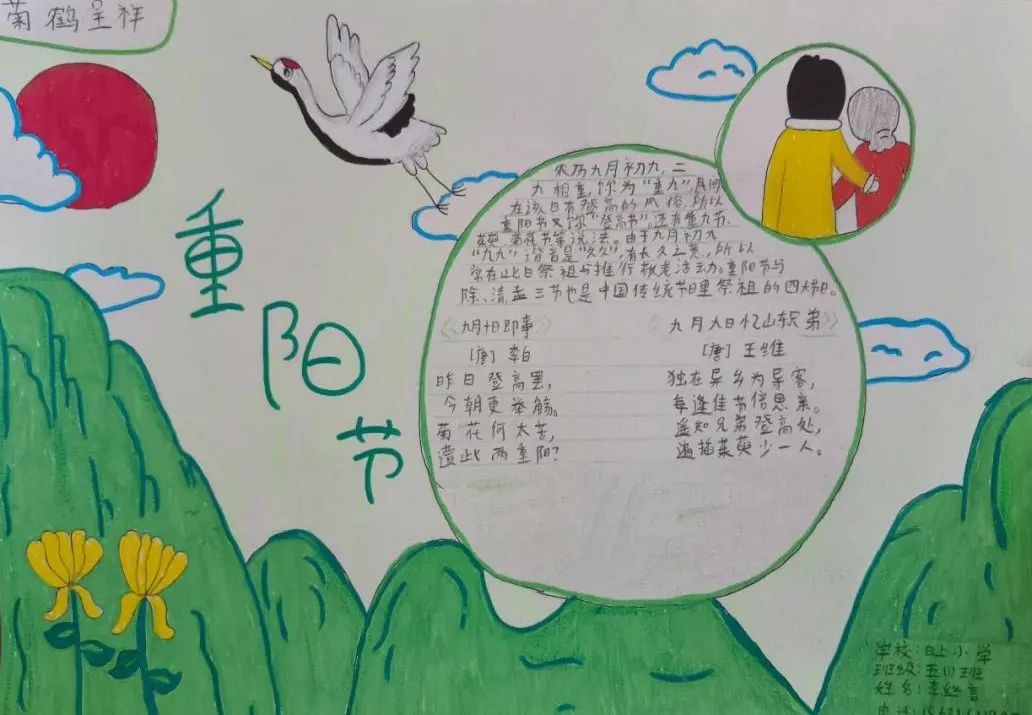 菊鹤呈祥
重阳节
农历九月初九,二
九相重,称为"重九",民间
在该日有登高的风俗,所以
重阳节又称"登高节",还有重九节、
茱萸、菊花节等说法。由于九月初九
"九九"谐音是"久久",有长久之意,所以
常在此日祭祖与推行敬老活动。重阳节与
除、清、盂三节也是中国传统节日里祭祖的四大节日。
《九月十日即事》
[唐] 李白
昨日登高罢,
今朝更举觞。
菊花何太苦,
遭此两重阳?
《九月九日忆山东兄弟》
[唐] 王维
独在异乡为异客,
每逢佳节倍思亲。
遥知兄弟登高处,
遍插茱萸少一人。
学校:日上小学
班级:五(1)班
姓名:李
电话: